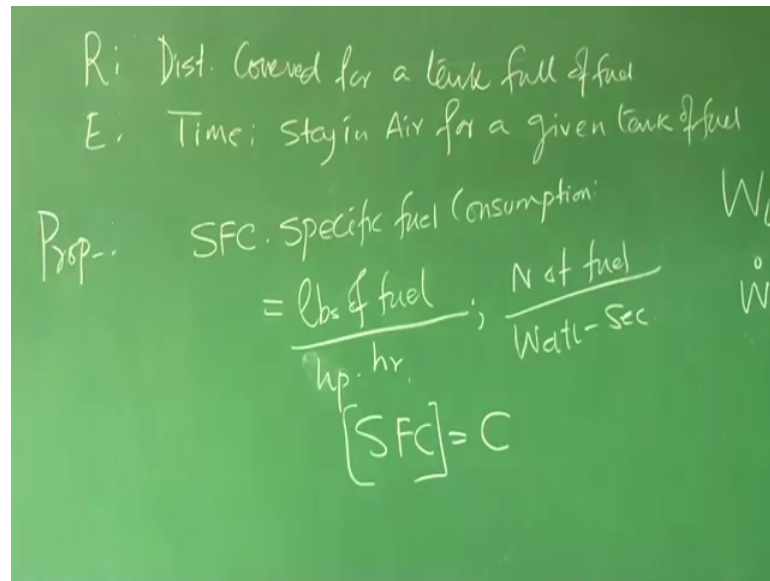 R: Dist. Covered for a tank full of fuel
E. Time: Stay in Air for a given tank of fuel
Prop-: SFC. Specific fuel Consumption:
= lbs of fuel / hp. hr. ; N of fuel / Watt-Sec.
[SFC] = C
W
Ẇ